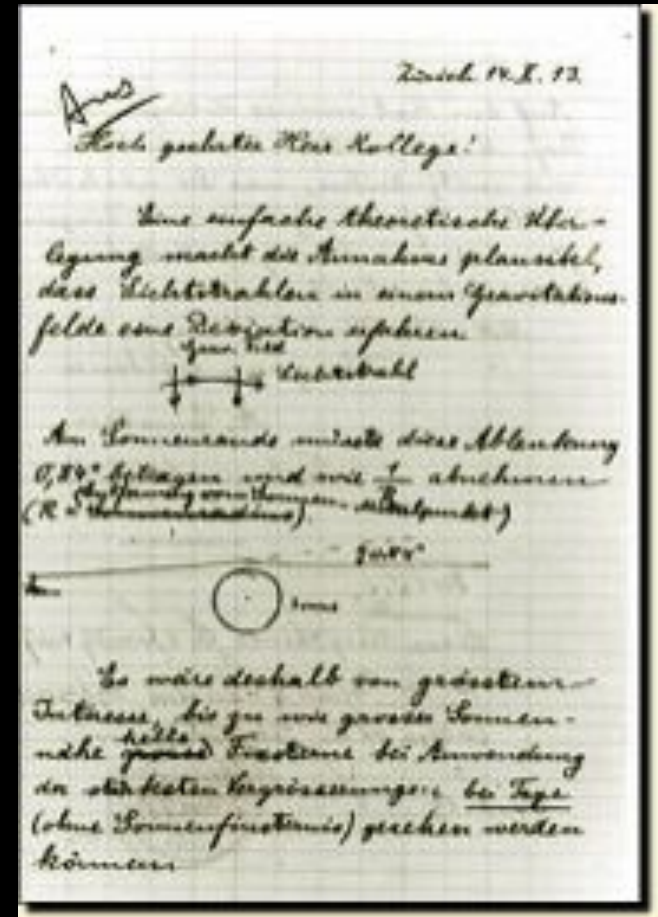 Zürich 14. X. 13.
Hoch geehrter Herr Kollege!
Eine einfache theoretische Über-
legung macht die Annahme plausibel,
dass Lichtstrahlen in einem Gravitations-
felde eine Deviation erfahren.
Grav. Feld
Lichtstrahl
Am Sonnenrande müsste diese Ablenkung
0,84" betragen und wie 1/R abnehmen
(R = Sonnenradius) Entfernung vom Sonnen-Mittelpunkt)
0.84"
Sonne
Es wäre deshalb von grösstem
Interesse, bis zu wie grosser Sonnen-
nähe helle Fixsterne bei Anwendung
der stärksten Vergrösserungen bei Tage
(ohne Sonnenfinsternis) gesehen werden
können.